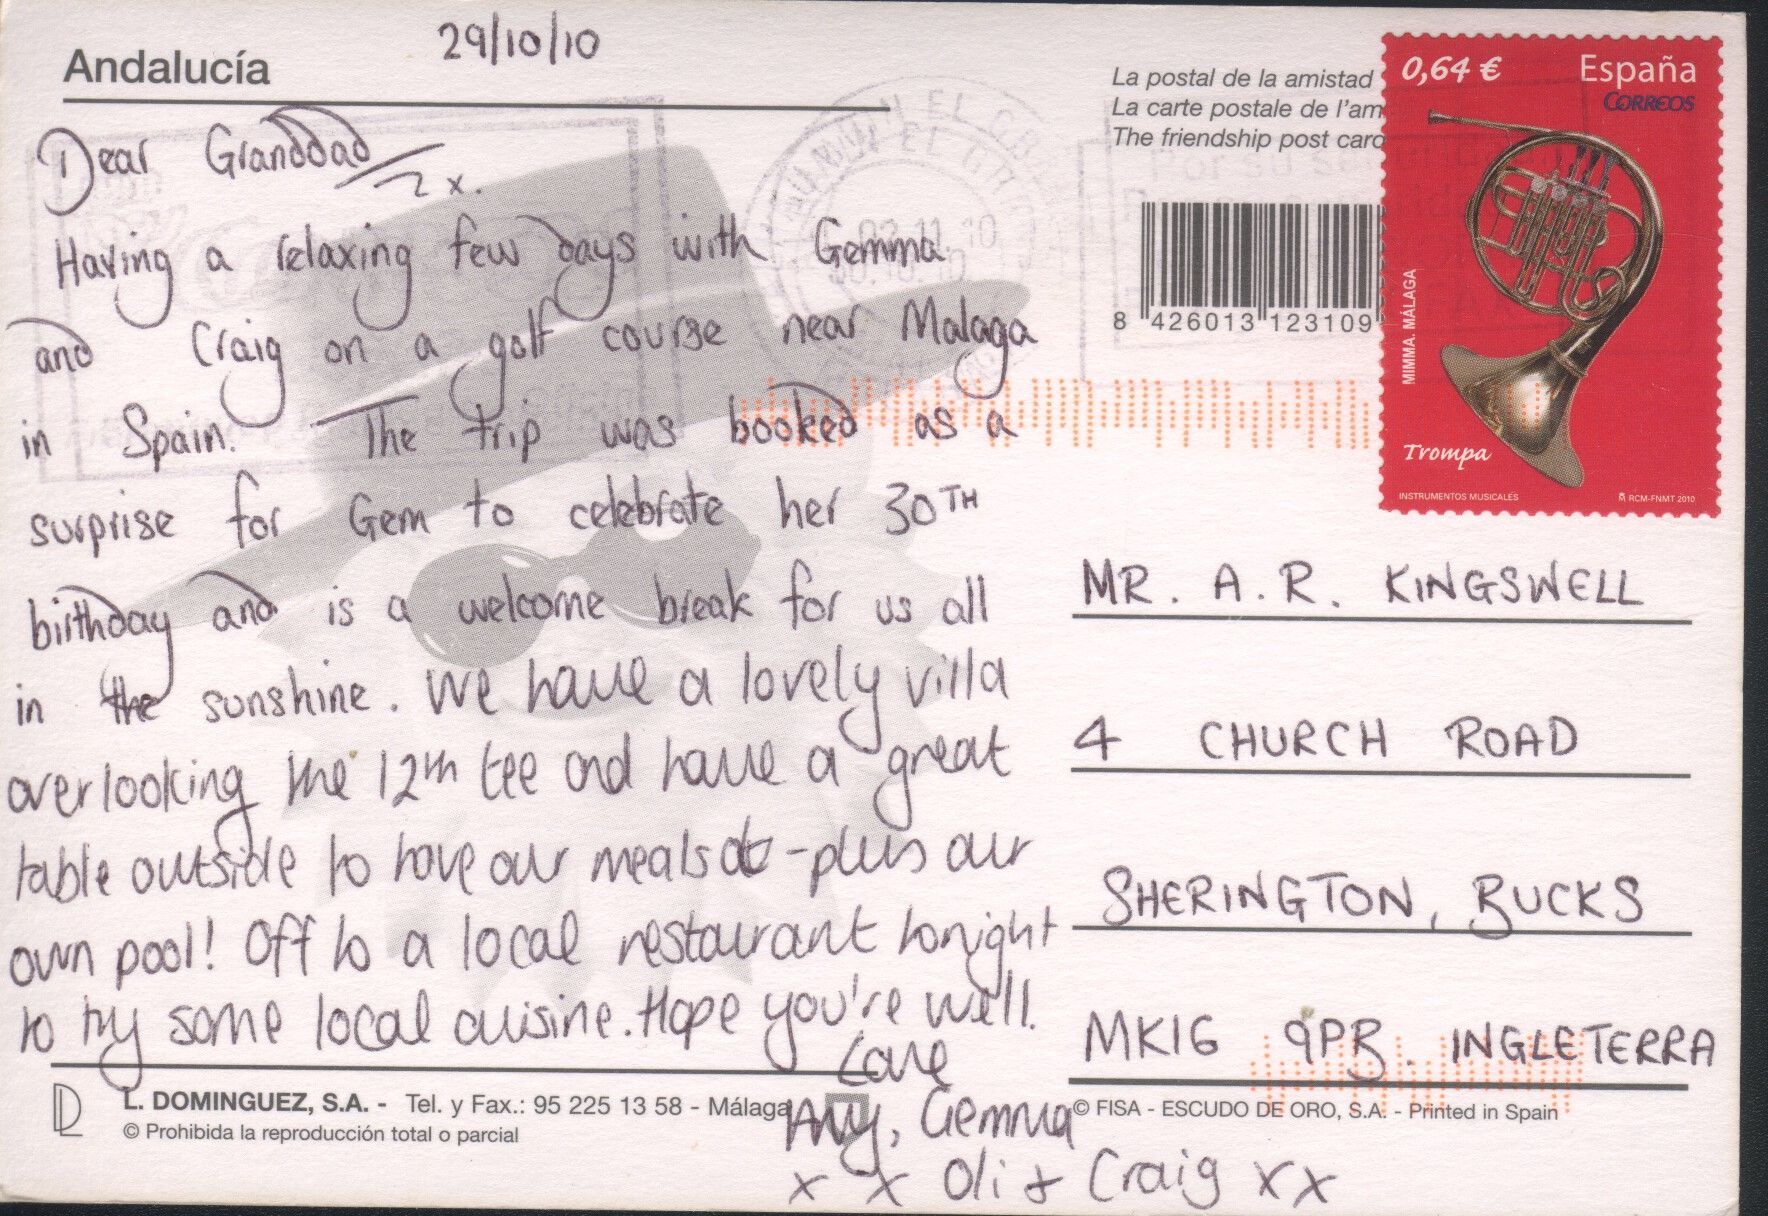 Andalucía
29/10/10
Dear Granddad x.
Having a relaxing few days with Gemma
and Craig on a golf course near Malaga
in Spain. The trip was booked as a
surprise for Gem to celebrate her 30TH
birthday and is a welcome break for us all
in the sunshine. We have a lovely villa
overlooking the 12th tee and have a great
table outside to have our meals - plus our
own pool! Off to a local restaurant tonight
to try some local cuisine. Hope you're well.
Love
Amy, Gemma
x x Oli & Craig xx
L. DOMINGUEZ, S.A. - Tel. y Fax.: 95 225 13 58 - Málaga
© Prohibida la reproducción total o parcial
La postal de la amistad
La carte postale de l'am
The friendship post card
8 426013 123109
0,64 € España
CORREOS
MIMMA. MÁLAGA
Trompa
INSTRUMENTOS MUSICALES RCM-FNMT 2010
MR. A. R. KINGSWELL
4 CHURCH ROAD
SHERINGTON, BUCKS
MK16 9PB. INGLETERRA
© FISA - ESCUDO DE ORO, S.A. - Printed in Spain